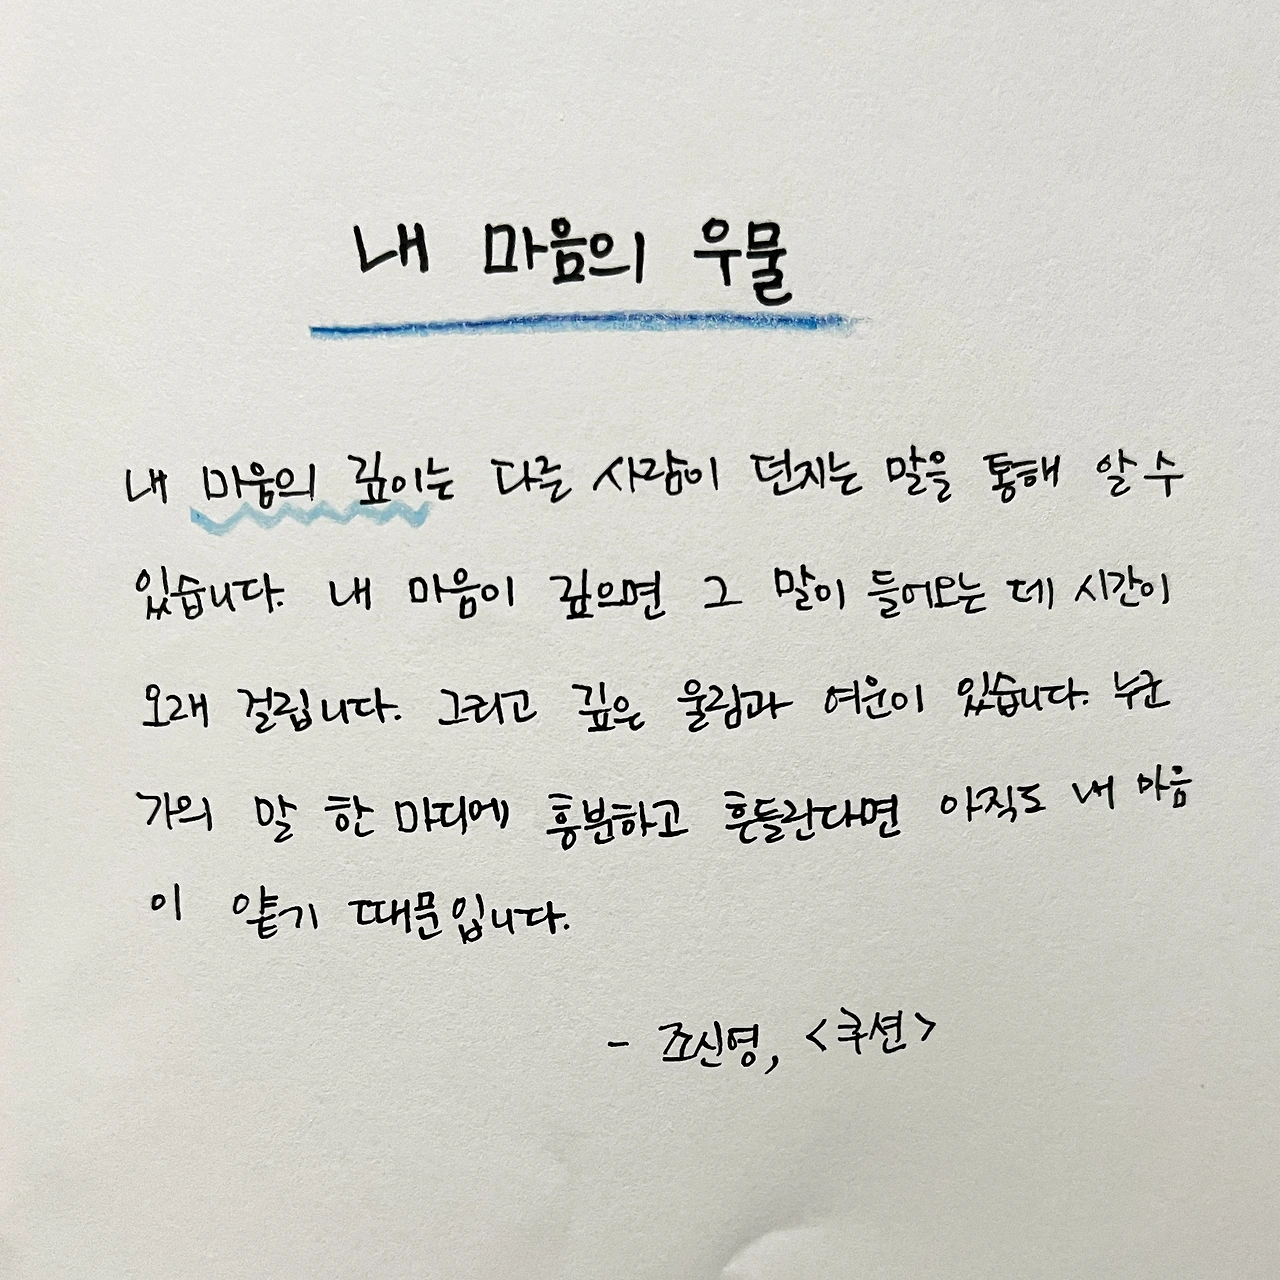 내 마음의 우물
내 마음의 깊이는 다른 사람이 던지는 말을 통해 알 수
있습니다. 내 마음이 깊으면 그 말이 들어오는 데 시간이
오래 걸립니다. 그리고 깊은 울림과 여운이 있습니다. 누군
가의 말 한 마디에 흥분하고 흔들린다면 아직도 내 마음
이 얕기 때문입니다.
- 조신영, <쿠션>